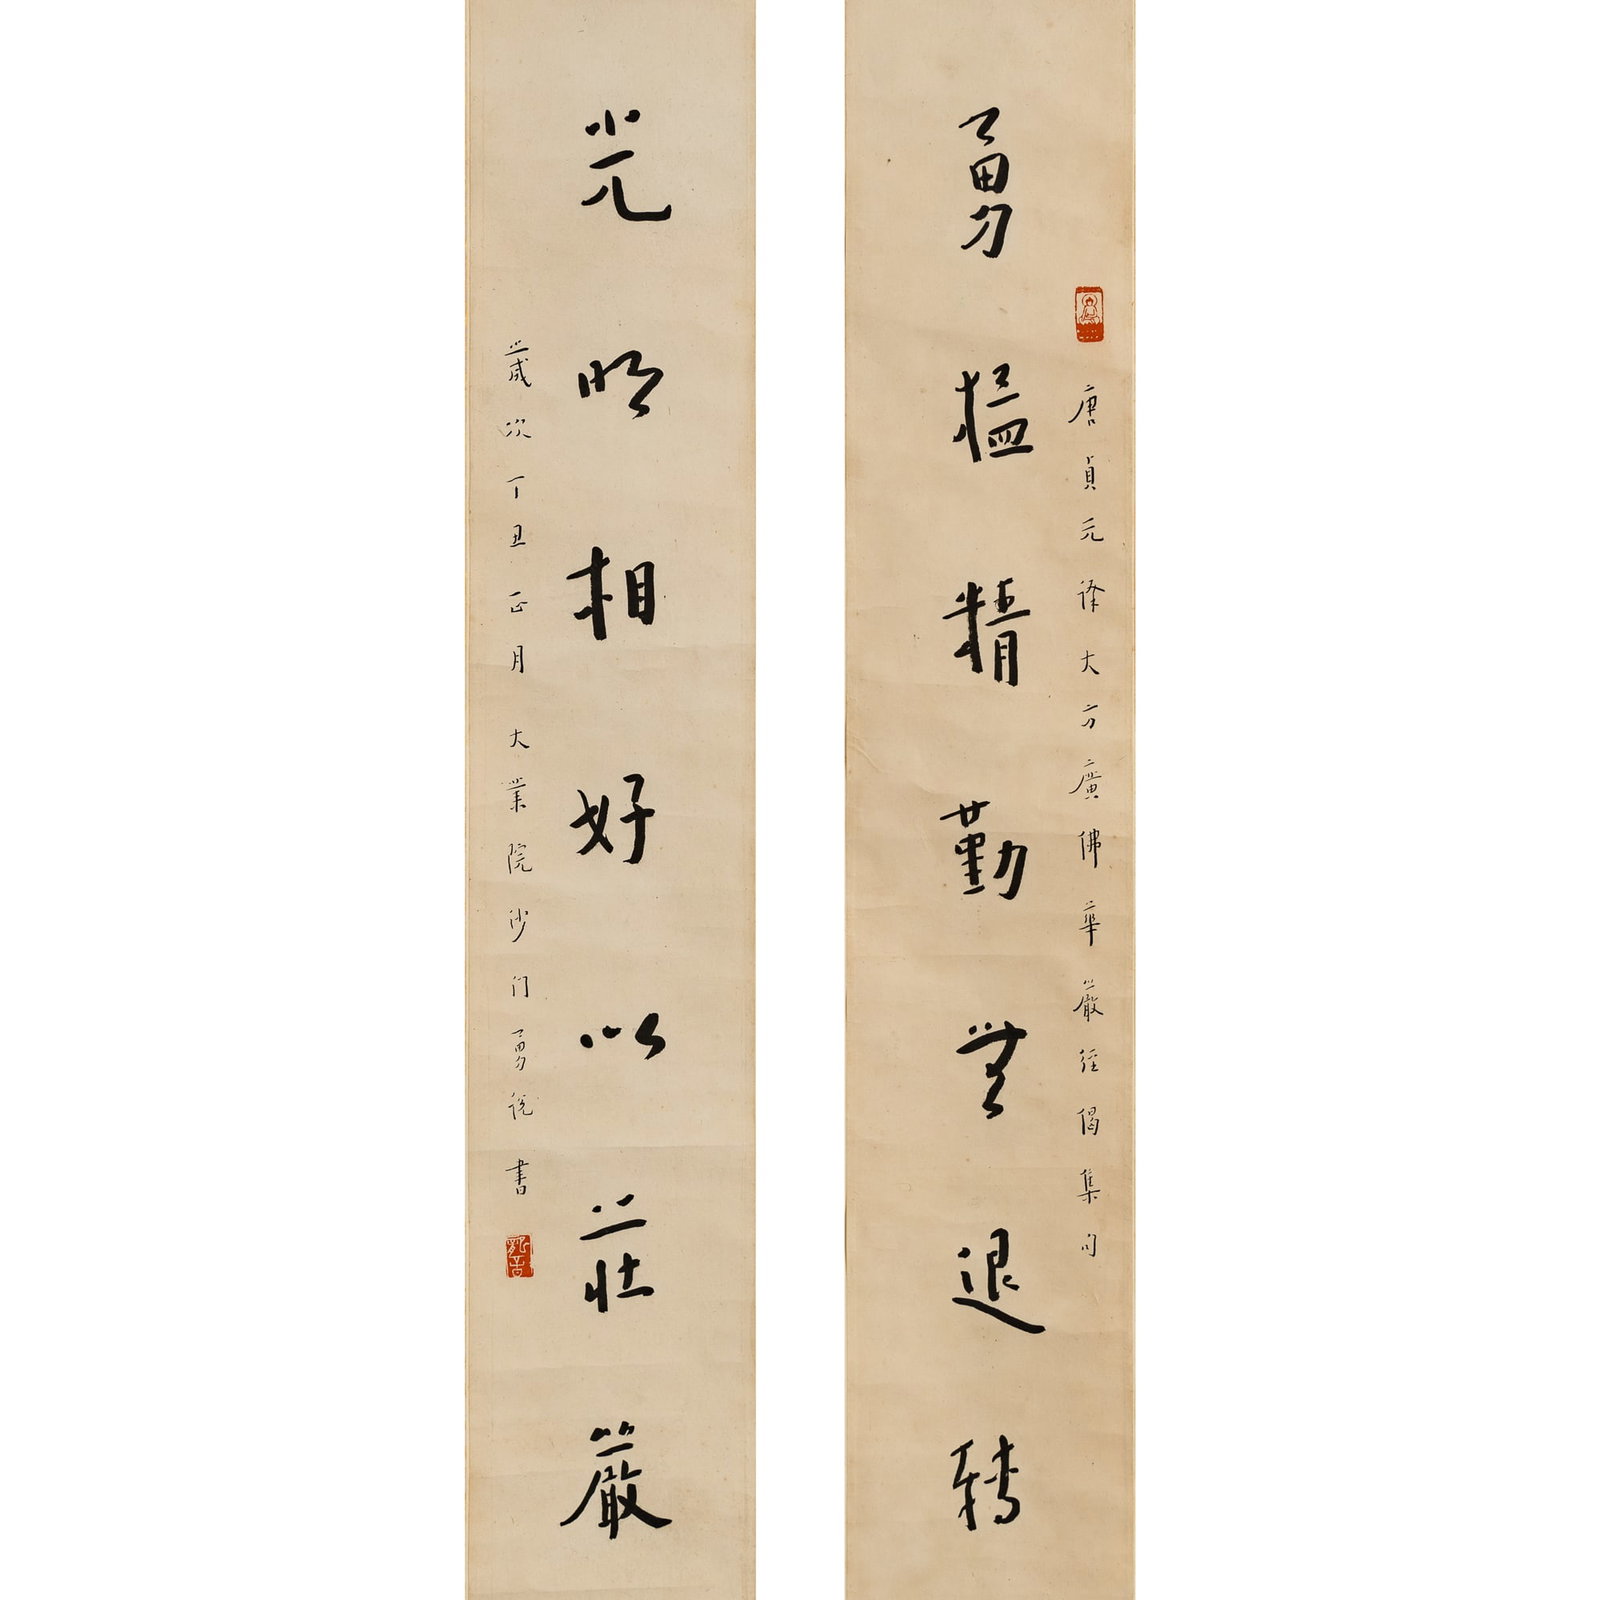 勇猛精勤無退轉
唐貞元譯大方廣佛華嚴經偈集句
光明相好以莊嚴
歲次丁丑正月 大業院沙門勇說 書
龍音